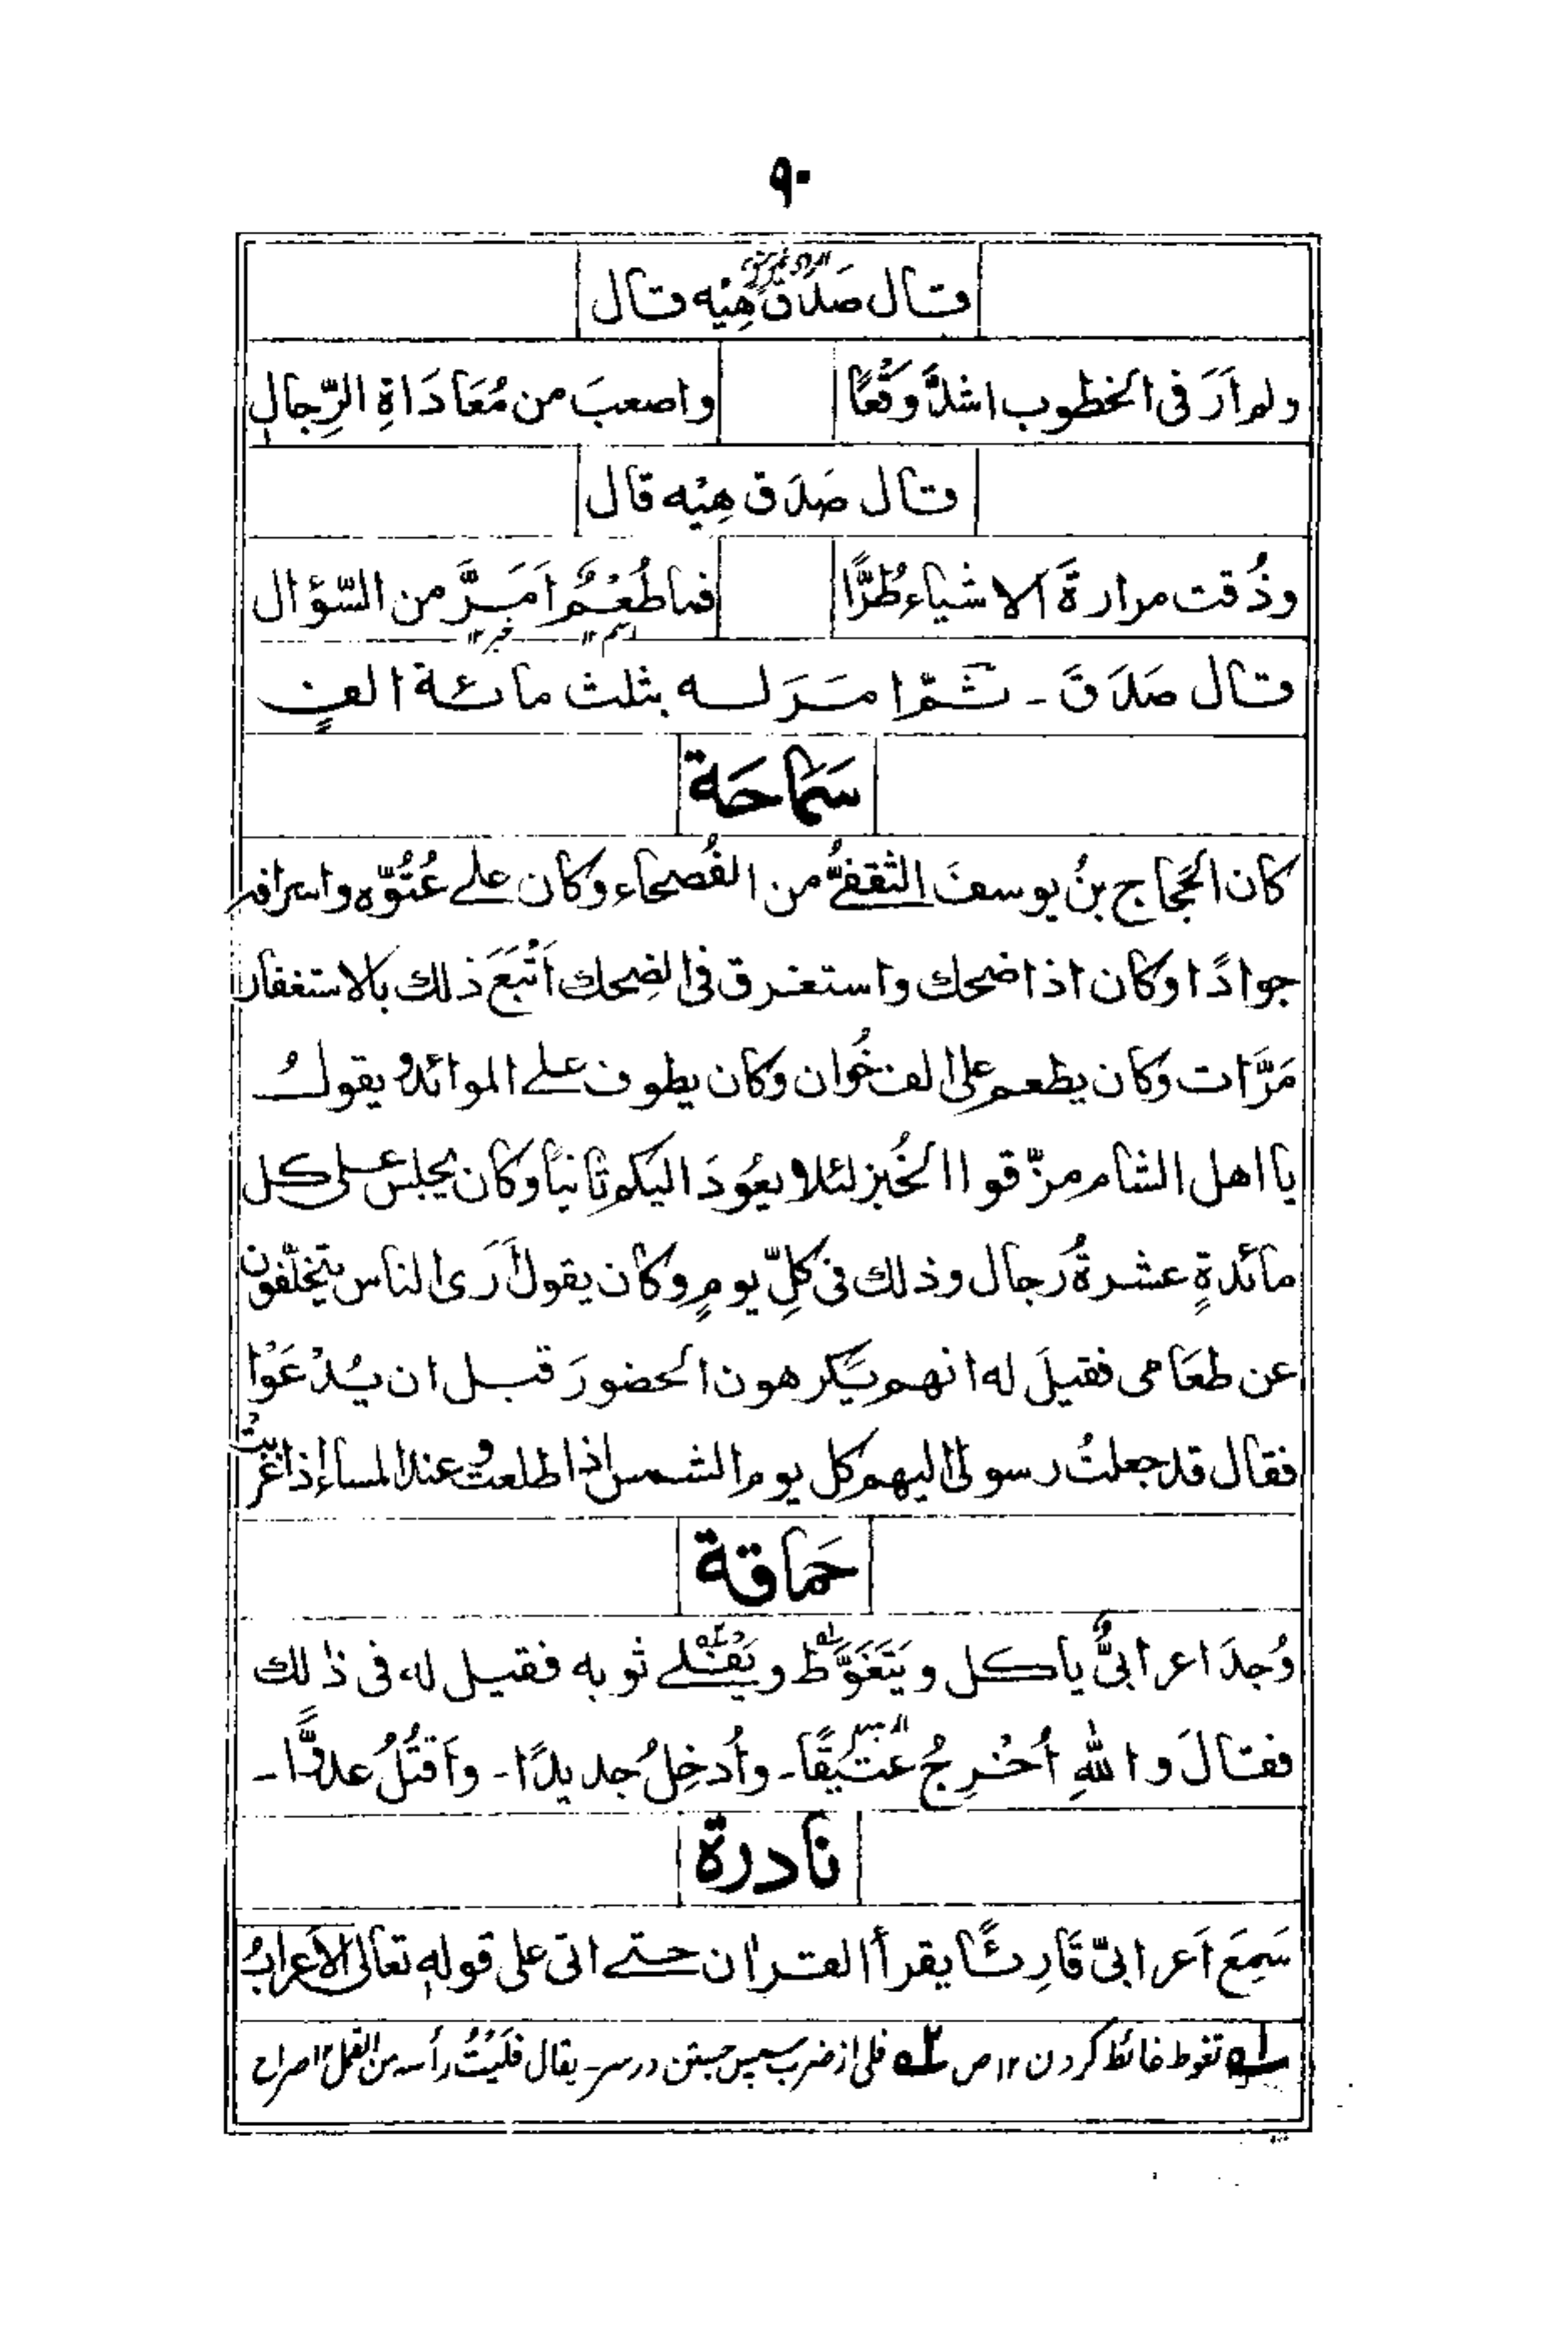 ٩٠
قال صَدَقَ هِيْه قال
ولم اَرَ فى الخطوب اشدَّ وَقْعًا واصعبَ من مُعَادَاةِ الرِّجالِ
قال صَدَق هِيْه قال
وذُقت مرارةَ الاشياء طُرًّا فما طُعْمٌ اَمَرَّ من السّؤال
قال صَدَقَ ـ ثمّ امَرَ له بثلث مائة الفٍ
سَمَاحَة
كان الحَجاج بنُ يوسفَ الثقفىُّ من الفُصحاء وكان على عُتُوِّه واسرافه
جوادًا وكان اذا ضحك واستغرق فى الضِحك اَتْبَعَ ذلك بالاستغفار
مَرَّات وكان يطعم على الف خُوان وكان يطوف على الموائد و يقولُ
يا اهل الشام مزّقوا الخُبز لئلا يعُودَ اليكم ثانياً وكان يجلس على كل
مائدةٍ عشرةُ رجال وذلك فى كلِّ يومٍ وكان يقول اَرَى الناس يتخلّفون
عن طعَامى فقيلَ له انهم يَكرهون الحضورَ قبل ان يُدْعَوْا
فقال قد جعلتُ رسولى اليهم كل يوم الشمس اذا طلعت و عند المساء إذا غربتْ
حَماقة
وُجدَ اعرابىٌّ ياكل ويَتَغَوَّط ويَفْلى ثوبه فقيل له فى ذلك
فقالَ واللهِ اُخْرِجُ عَتيْقًا ـ واُدخِلُ جديدًا ـ واَقتُلُ عدوًّا ـ
نادرة
سَمِعَ اَعرابىّ قَارِئًا يقرأ القران حتى اتى على قوله تعالى الاَعرابُ
١ه تغوط غائط كردن ١٢ ص ٢ه فلى از ضرب سپس جستن در سر ـ يقال فلَيْتُ رأسه من القمل ١٢ صراح